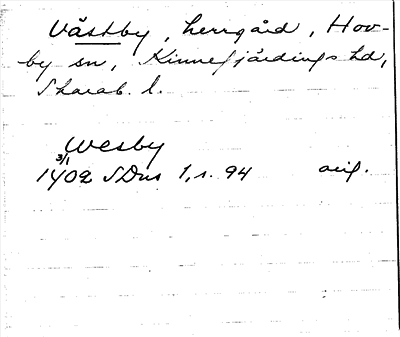 Våstby, herrgård, Hov-
by sn, Kinnefjärdings hd,
Skarab. l.
Wesby
3/1
1402 SDns 1, s. 94 orig.